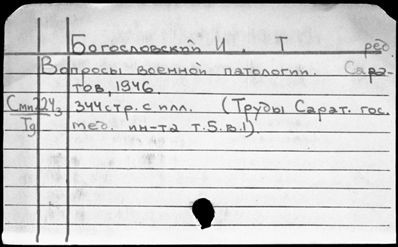 Богословский И. Т ред.
Вопросы военной патологии. Сара-
тов, 1946.
344 стр. с илл. (Труды Сарат. гос.
мед. ин-та т.5.в.1).